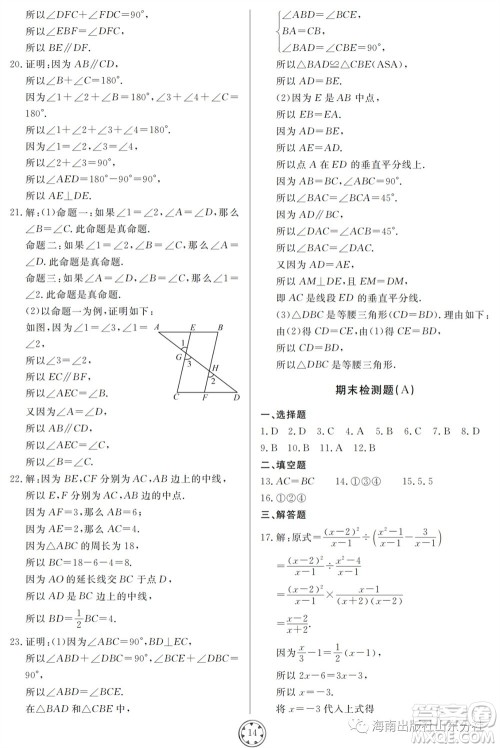 所以∠DFC+∠FDC=90°.
所以∠EBF=∠DFC.
所以BE∥DF.
20. 证明:因为AB∥CD,
所以∠B+∠C=180°.
因为∠1+∠2+∠B+∠3+∠4+∠C=180°+
180°,
所以∠1+∠2+∠3+∠4=180°.
因为∠1=∠2,∠3=∠4,
所以∠2+∠3=90°.
所以∠AED=180°-90°=90°.
所以AE⊥DE.
21. 解:(1)命题一:如果∠1=∠2,∠A=∠D,那么
∠B=∠C.此命题是真命题.
命题二:如果∠1=∠2,∠B=∠C,那么∠A=
∠D.此命题是真命题.
命题三:如果∠A=∠D,∠B=∠C,那么∠1=
∠2.此命题是真命题.
(2)以命题一为例,证明如下:
如图,因为∠1=∠3,∠1=
∠2,
所以∠3=∠2.
所以EC∥BF.
所以∠AEC=∠B.
又因为∠A=∠D,
所以AB∥CD.
所以∠AEC=∠C.
所以∠B=∠C.
A E B
1
G 3
H
2
C F D
22. 解:因为BE,CF分别为AC,AB边上的中线,
所以E,F分别为AC,AB的中点.
所以AC=2AE=4,AB=2AF=6.
因为△ABC的周长为18,
所以BC=18-4-6=8.
因为AO的延长线交BC于点D,
所以AD为△ABC的中线,
所以BD=1/2BC=4.
23. 证明:(1)因为∠ABC=90°,BD⊥EC,
所以∠ABD+∠DBC=90°,∠BCE+∠DBC=90°.
所以∠ABD=∠BCE.
在△BAD和△CBE中,
∠ABD=∠BCE,
BA=CB,
∠BAD=∠CBE=90°,
所以△BAD≌△CBE(ASA),
所以AD=BE.
(2)因为E是AB中点,
所以EB=EA.
所以AE=AD.
所以点A在ED的垂直平分线上.
因为∠ABC=90°,AB=BC,
所以∠BAC=∠BCA=45°.
因为AD∥BC,
所以∠DAC=∠BCA=45°.
所以∠BAC=∠DAC.
又因为AD=AE,
所以AM⊥DE,且EM=DM.
即AC是线段ED的垂直平分线.
(3)△DBC是等腰三角形.理由如下:
由(2)得CD=CE,由(1)得CE=BD,
所以CD=BD.
所以△DBC是等腰三角形.
期末检测题(A)
一、选择题
1. D 2. D 3. D 4. B 5. C 6. C 7. B 8. B
9. B 10. B 11. A 12. B
二、填空题
13. AC=BC 14. ①③④ 15. 5,5
16. ①②④
三、解答题
17. 解:原式=(x-2)²/(x-1)÷(x²-1/(x-1)-3/(x-1))
=(x-2)²/(x-1)÷(x²-4)/(x-1)
=(x-2)²/(x-1)×(x-1)/((x+2)(x-2))
=(x-2)/(x+2).
因为1/(x-1)=2/(x-3),
所以2x-6-x+1=0.
所以2x-x=6-1.
将x=-3代入上式得
14
海南出版社山东分社